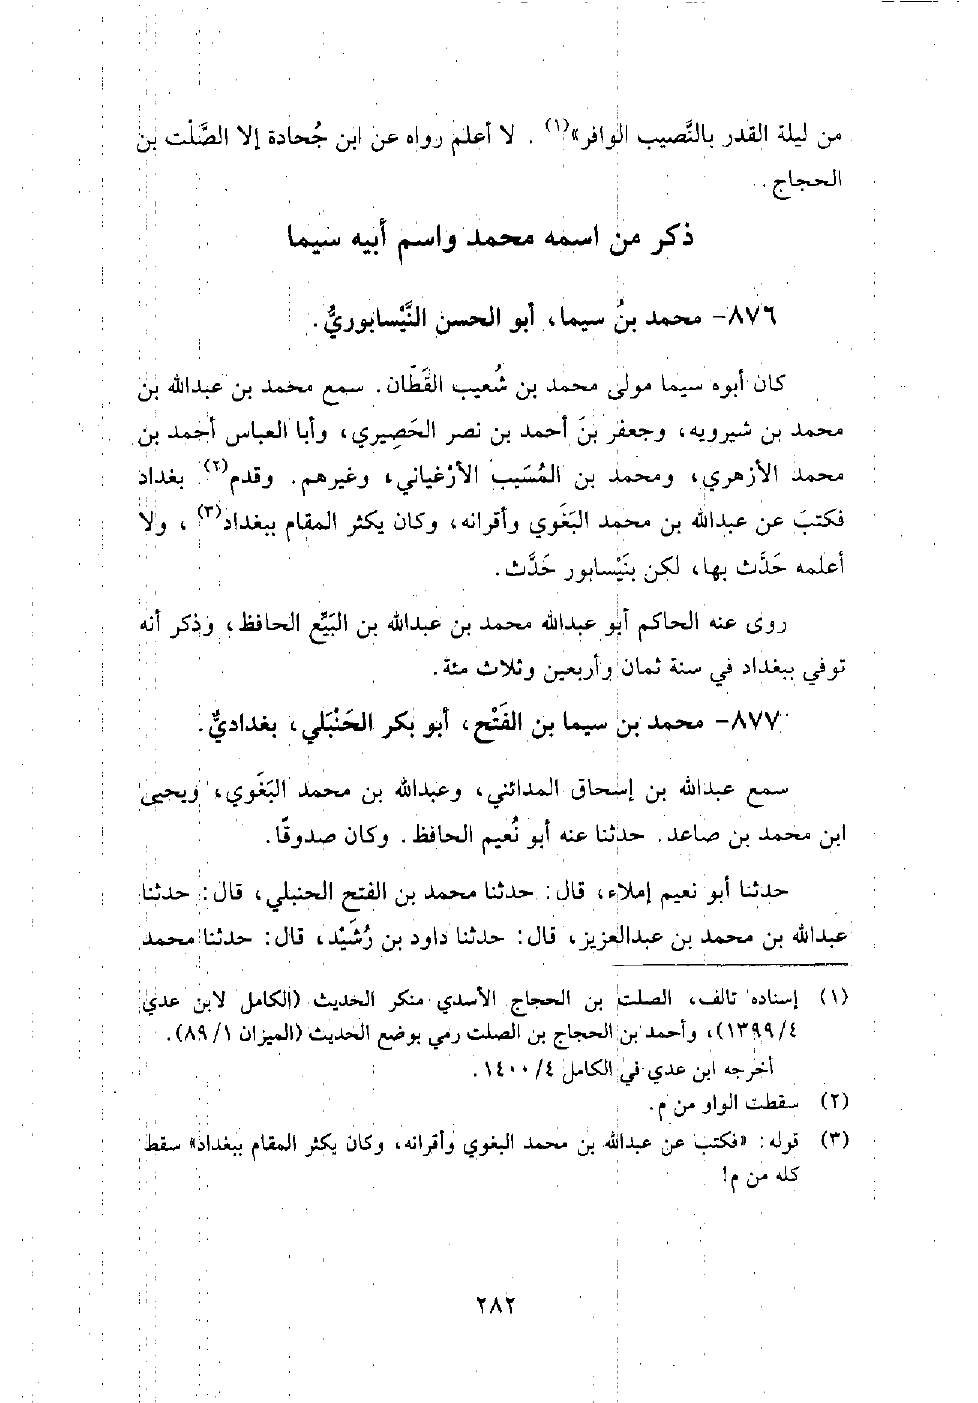 من ليلة القدر بالنَّصيب الوافر»(١) . لا أعلم رواه عن ابن جُحادة إلا الصَّلْت بن
الحجاج .
ذكر من اسمه محمد واسم أبيه سيما
٨٧٦- محمد بنُ سيما، أبو الحسن النَّيْسابوريُّ.
كان أبوه سيما مولى محمد بن شُعيب القَطّان. سمع محمد بن عبدالله بن
محمد بن شيرويه، وجعفر بنَ أحمد بن نصر الحَصِيري، وأبا العباس أحمد بن
محمد الأزهري، ومحمد بن المُسَيب الأرْغياني، وغيرهم. وقدم(٢) بغداد
فكتبَ عن عبدالله بن محمد البَغَوي وأقرانه، وكان يكثر المقام ببغداد(٣) ، ولا
أعلمه حَدَّث بها، لكن بنَيْسابور حَدَّث.
روى عنه الحاكم أبو عبدالله محمد بن عبدالله بن البَيِّع الحافظ، وذكر أنه
توفي ببغداد في سنة ثمان وأربعين وثلاث مئة.
٨٧٧- محمد بن سيما بن الفَتْح، أبو بكر الحَنْبَلي، بغداديٌّ.
سمع عبدالله بن إسحاق المدائني، وعبدالله بن محمد البَغَوي، ويحيى
ابن محمد بن صاعد. حدثنا عنه أبو نُعيم الحافظ. وكان صدوقًا.
حدثنا أبو نعيم إملاء، قال: حدثنا محمد بن الفتح الحنبلي، قال: حدثنا
عبدالله بن محمد بن عبدالعزيز، قال: حدثنا داود بن رُشَيْد، قال: حدثنا محمد
(١) إسناده تالف، الصلت بن الحجاج الأسدي منكر الحديث (الكامل لابن عدي
٤/ ١٣٩٩)، وأحمد بن الحجاج بن الصلت رمي بوضع الحديث (الميزان ١/ ٨٩).
أخرجه ابن عدي في الكامل ٤/ ١٤٠٠.
(٢) سقطت الواو من م.
(٣) قوله: «فكتب عن عبدالله بن محمد البغوي وأقرانه، وكان يكثر المقام ببغداد» سقط
كله من م!
٢٨٢